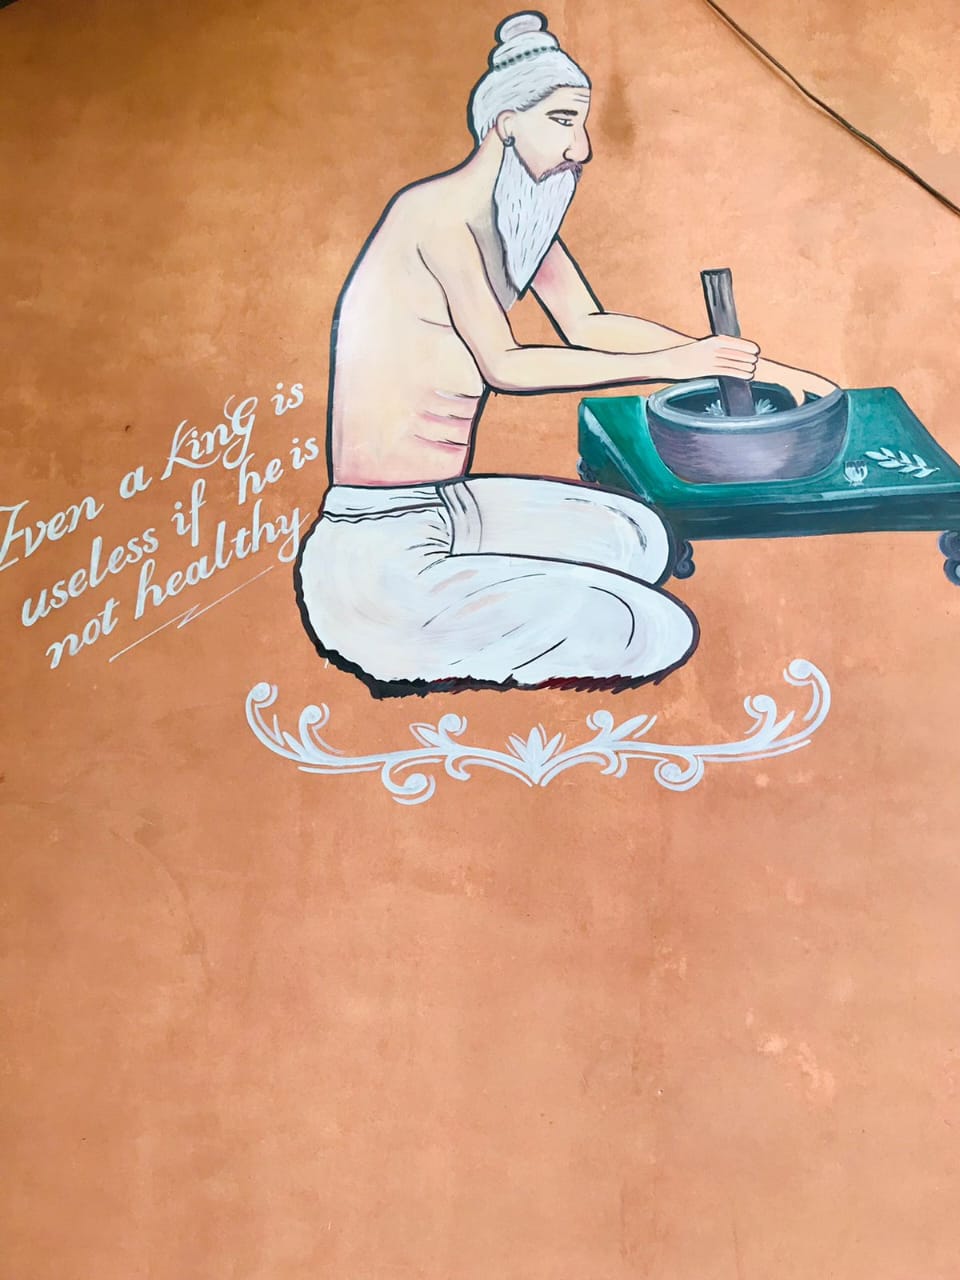 Even a King is
useless if he is
not healthy